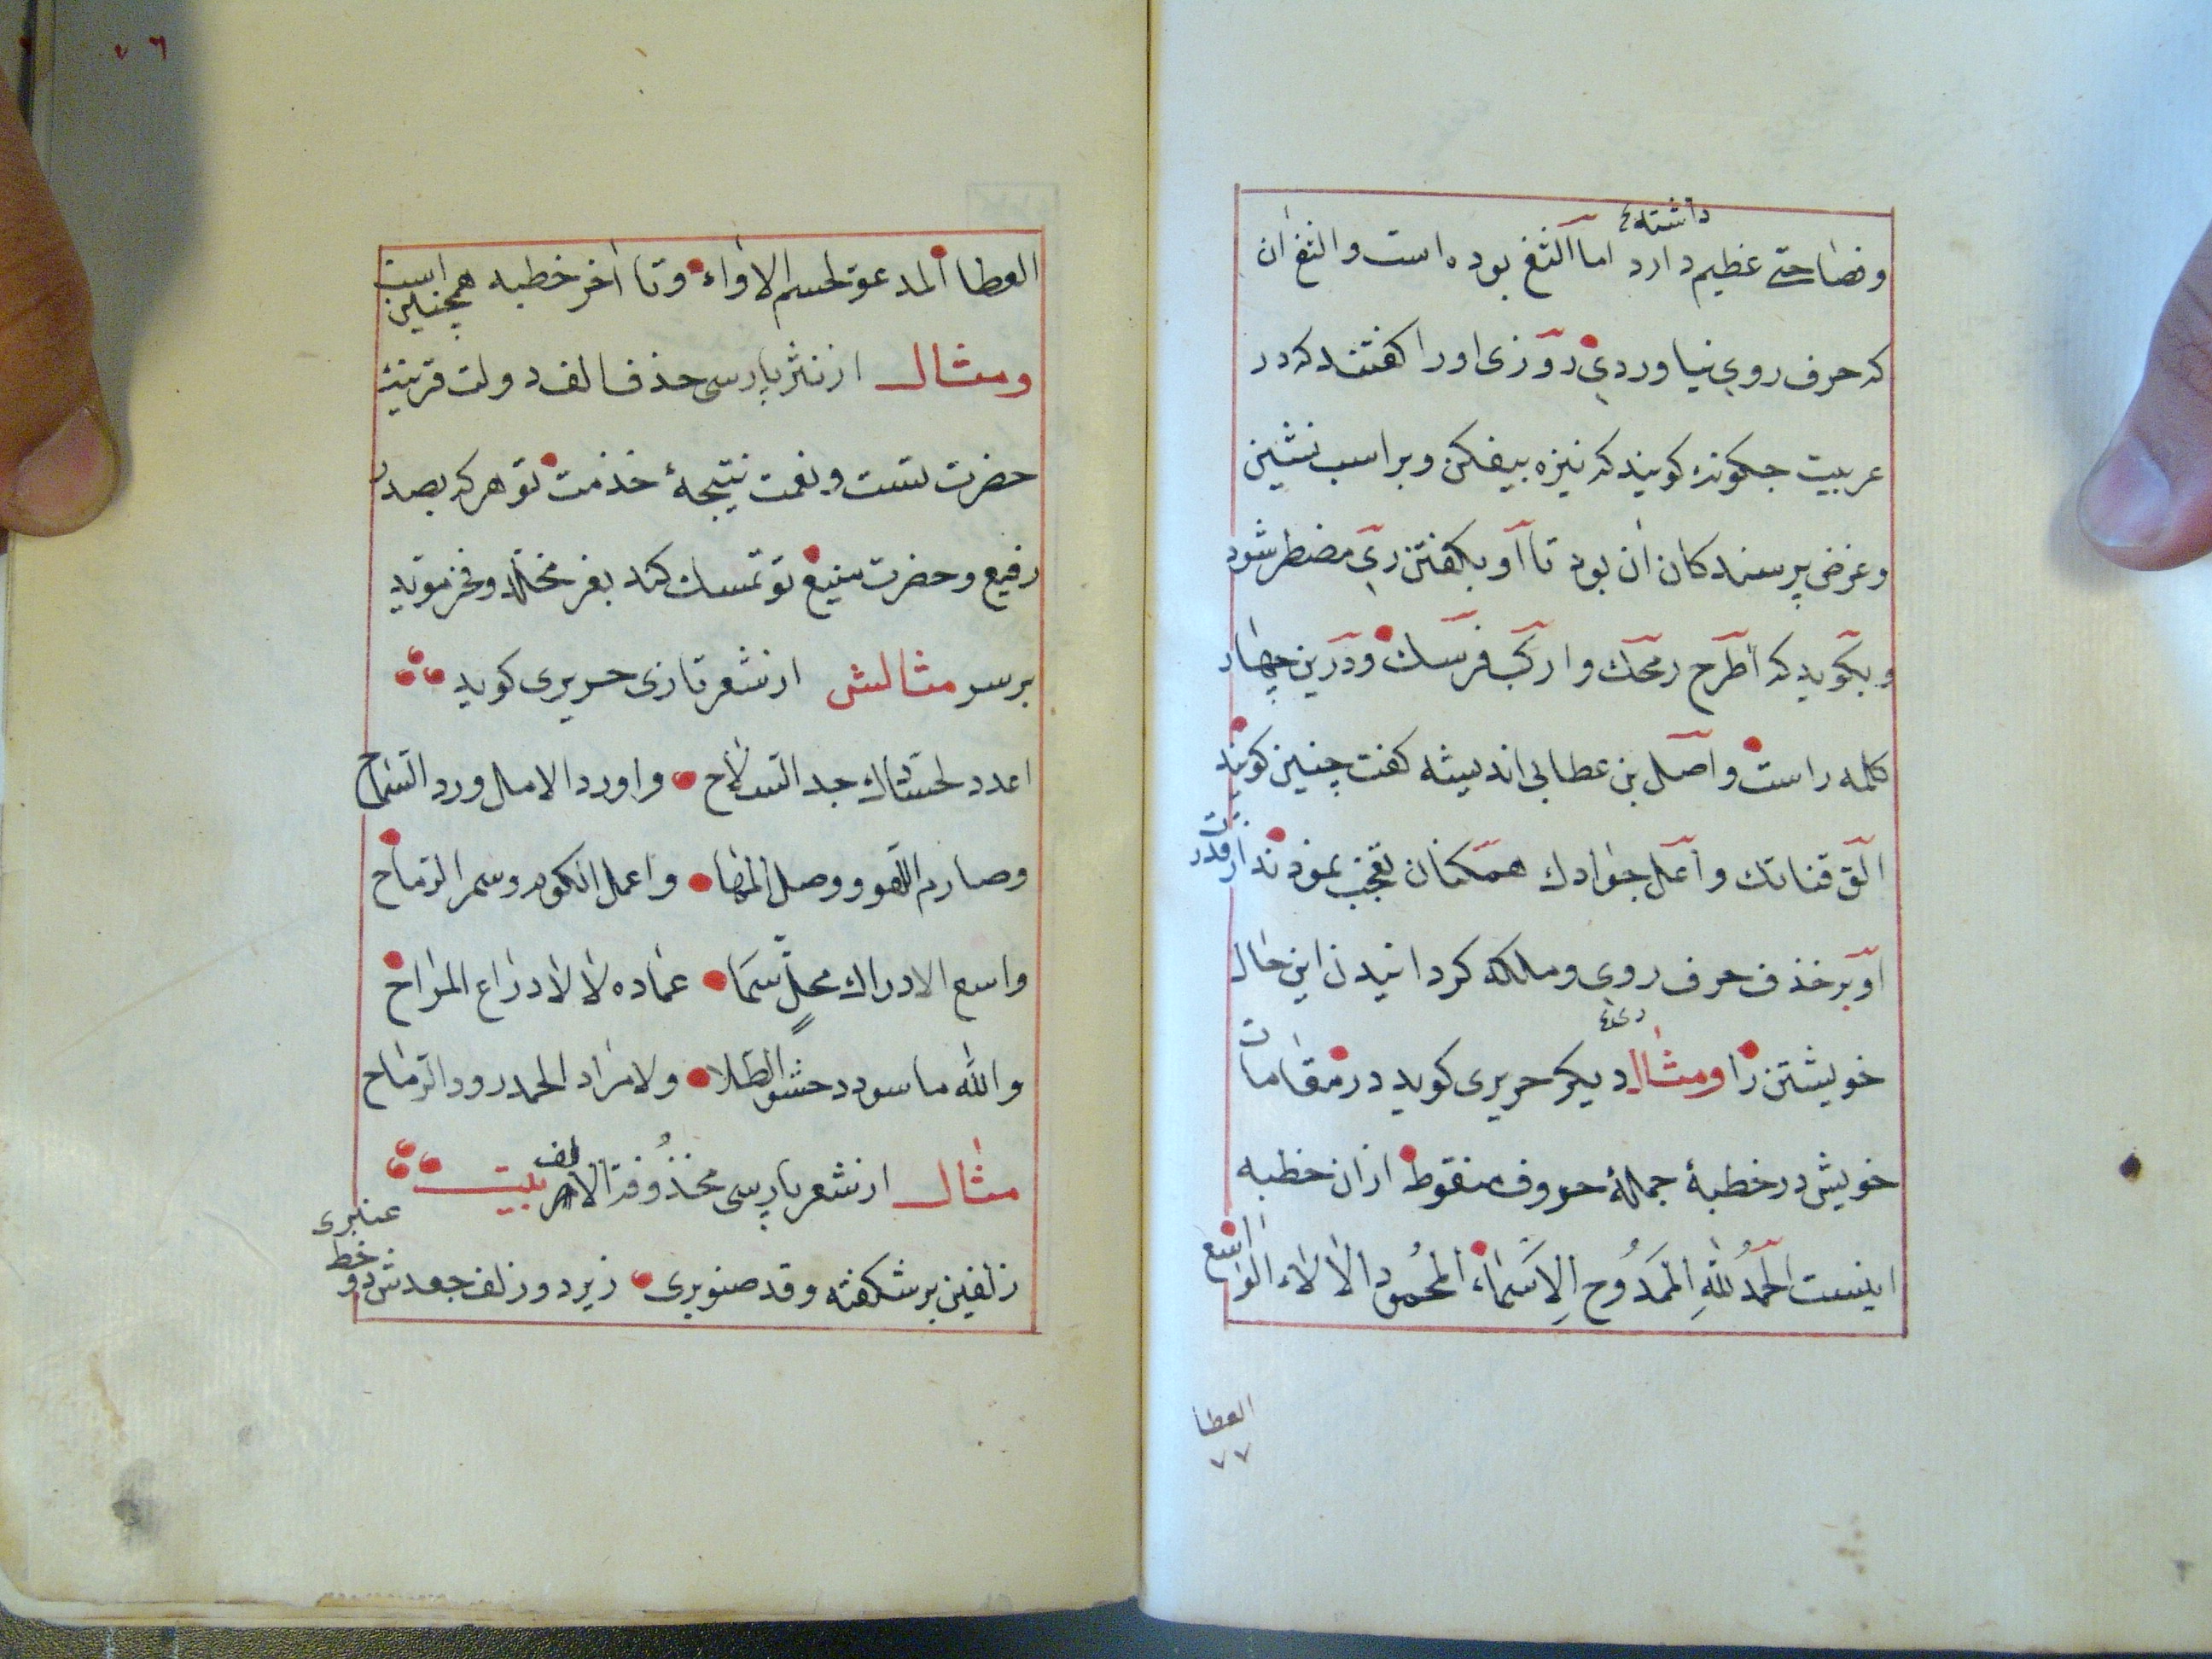 داشته
وفصاحتے عظیم دارد اما الثغ بوده است والثغ ان
که حرف روی نیاوردی روزی اورا کفتند که در
عربیت جکونه کویند که نیزه بیفکن وبراسب نشین
وغرض پرسندکان ان بود تا او بکفتن ری مضطر شود
وبکوید که اطرح رمحک وارکب فرسک ودرین چهار
کلمه راست واصل بن عطا بی اندیشه کفت چنین کویند
الق قناتک واعل جوادک همکنان تعجب نمودند از قدرت
او بر حذف حرف روی وملکه کردانیدن این حال
خویشتن را ومثال دیکر حریری کوید در مقامات
خویش در خطبهٔ جملهٔ حروف منقوط ازان خطبه
اینست الحمدُ للهِ الممدُوح الاسماء المحمُود الالاء الواسع
العطا
۷۷
۷٦
العطا المدعو لحسم الاواء وتا اخر خطبه همچنین است
ومثال از نثر پارسی حذف الف دولت قرینهٔ
حضرت تست ونعمت نتیجهٔ خدمت تو هر که بصدر
رفیع وحضرت منیع تو تمسک کند بعز مخلد وفخر موید
برسد مثالش از شعر تازی حریری کوید
اعدد لحسادک حد السلاح واورد الامل ورد السماح
وصارم اللهو ووصل المها واعمل الکوم وسمر الرماح
واسع لادراک محلّ سما عماده لا لادراع المراح
والله ما سودد حسو الطلا ولا مراد الحمد رود الرماح
مثال از شعر پارسی محذُوفة الالف بیت
زلفین بر شکفته وقد صنوبری زیر دو زلف جعدش دو خط عنبری